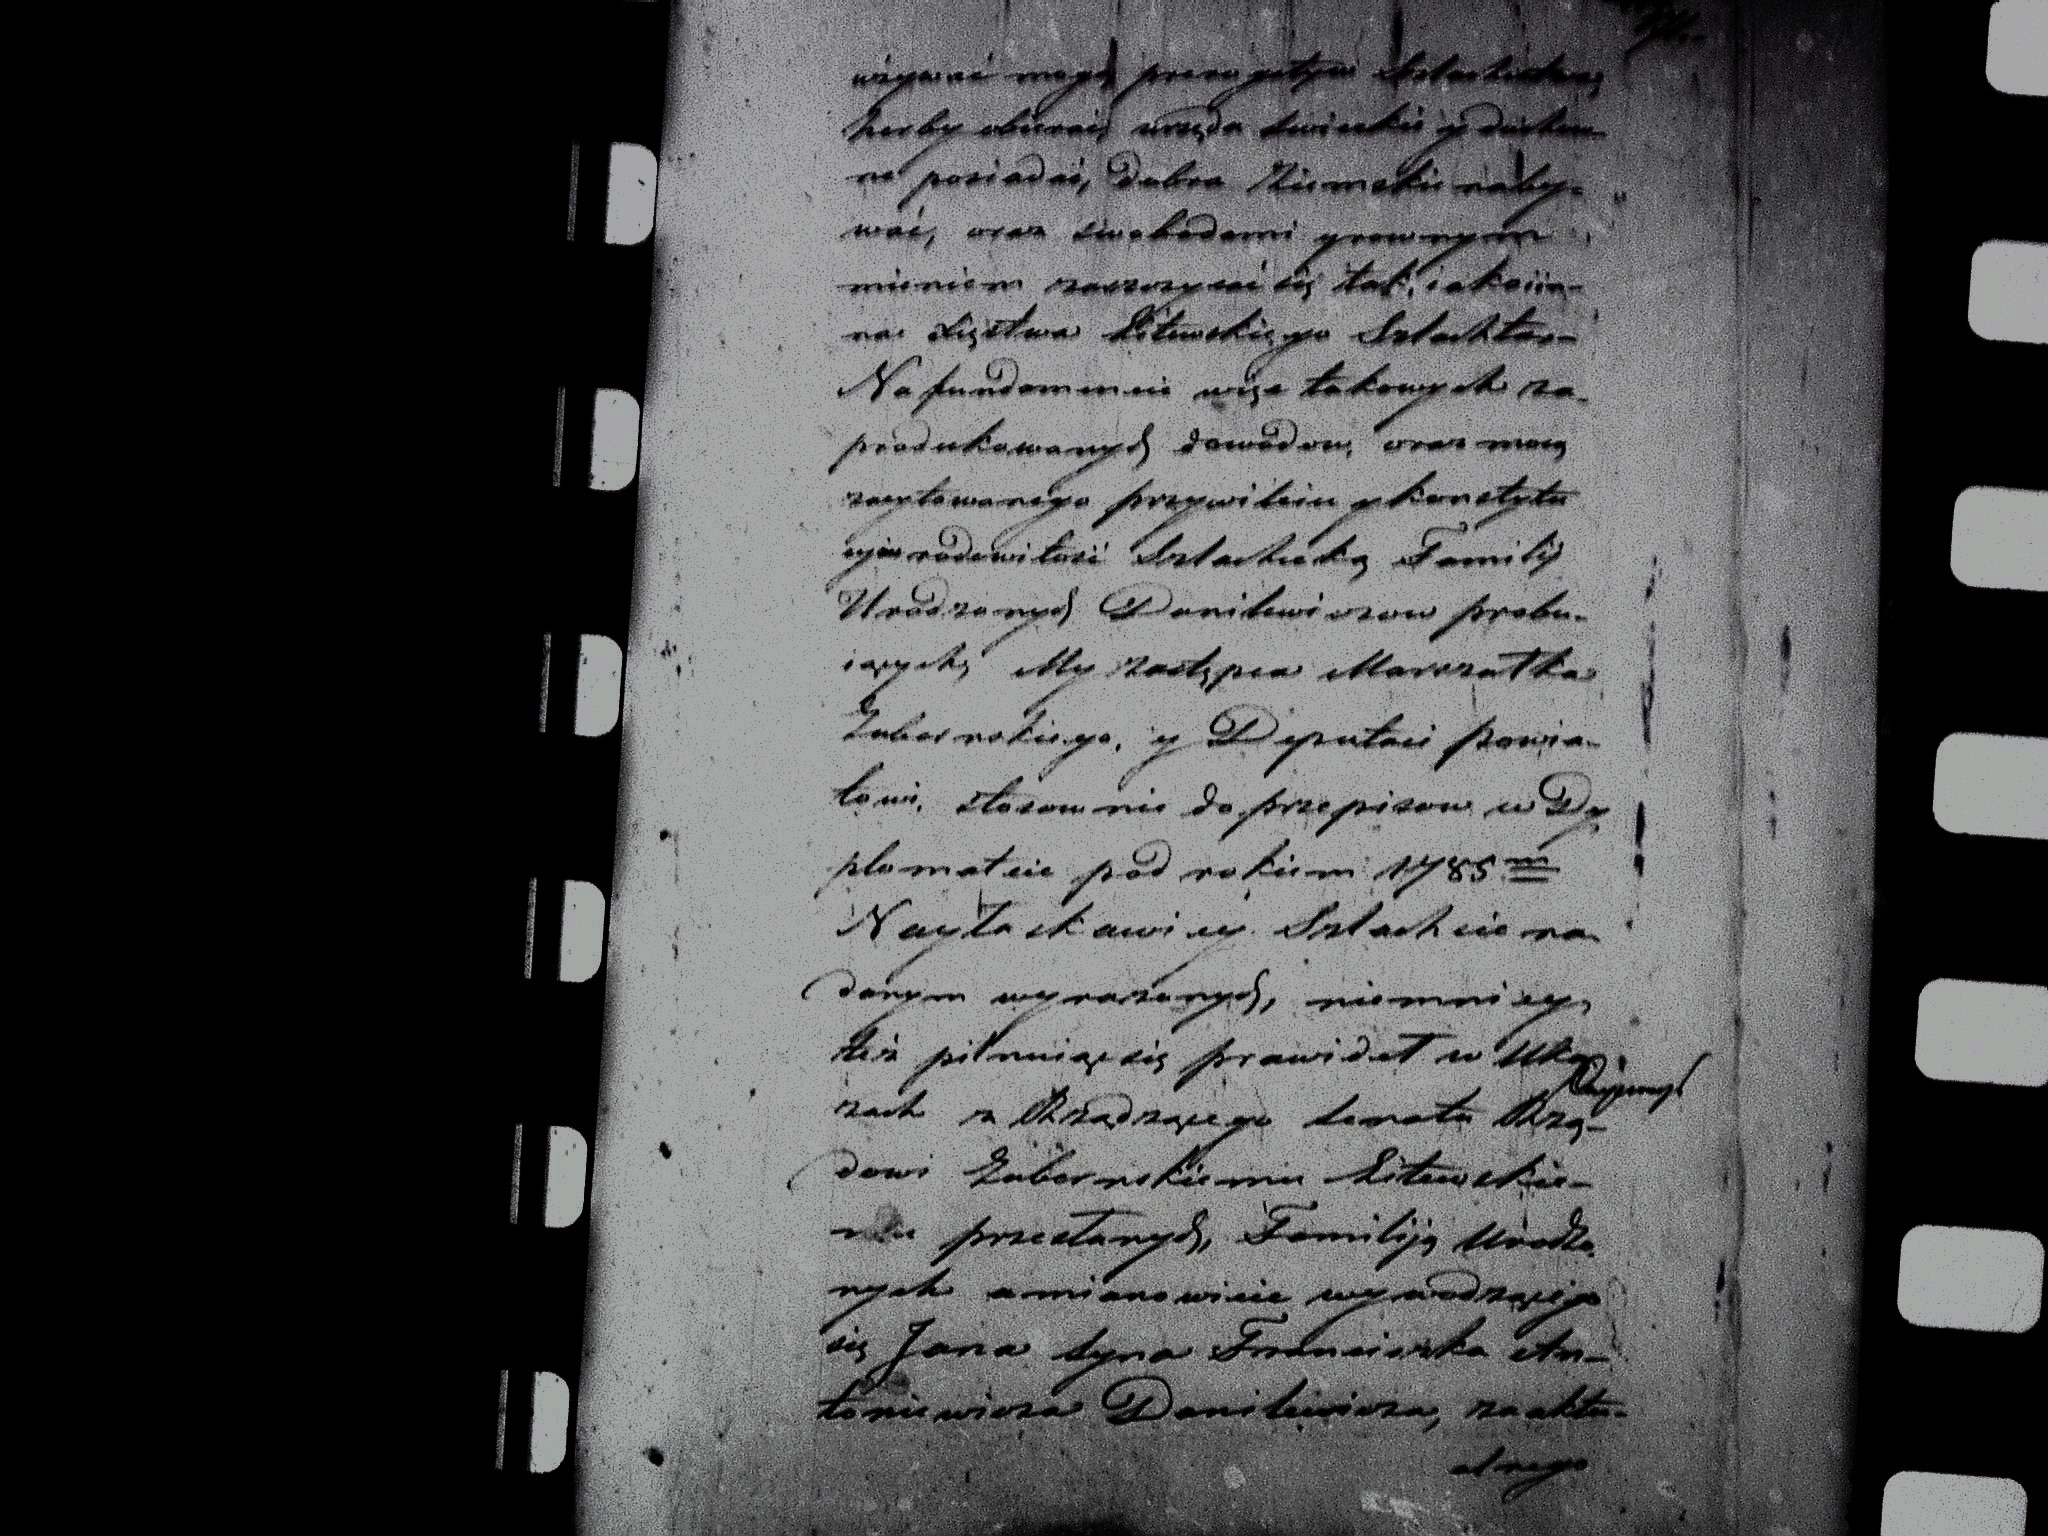 używać mogą prerogatyw Szlachectwa,
herby obierać, urzęda swieckie y duchow-
ne posiadać, dobra Ziemskie naby-
wać, oraz swobodami y rownym
mieniem zaszczycać się tak, iako in-
na Xięstwa Litewskiego Szlachta.-
Na fundamencie więc takowych za-
produkowanych dowodow, oraz mocą
zacytowanego przywileiu y konstytu
cyi rodowitość Szlachecką Familij
Urodzonych Danilewiczow probu-
iących, My zastępca Marszałka
Gubernskiego, y Deputaci powia-
towi, stosownie do przepisow w Dy
plomatcie pod rokiem 1785 m
Nayłaskawiey Szlachcie na
danym wyrażonych, niemniey
też pilnuiąc się prawideł w Uka
zach z Rządzącego Senatu Rzą-
dowi Gubernskiemu Litewskie-
mu przesłanych, Familiją Urodzo
nych a mianowicie wywodzącego
się Jana syna Franciszka An-
toniewicza Danilewicza, za aktu-
alnego